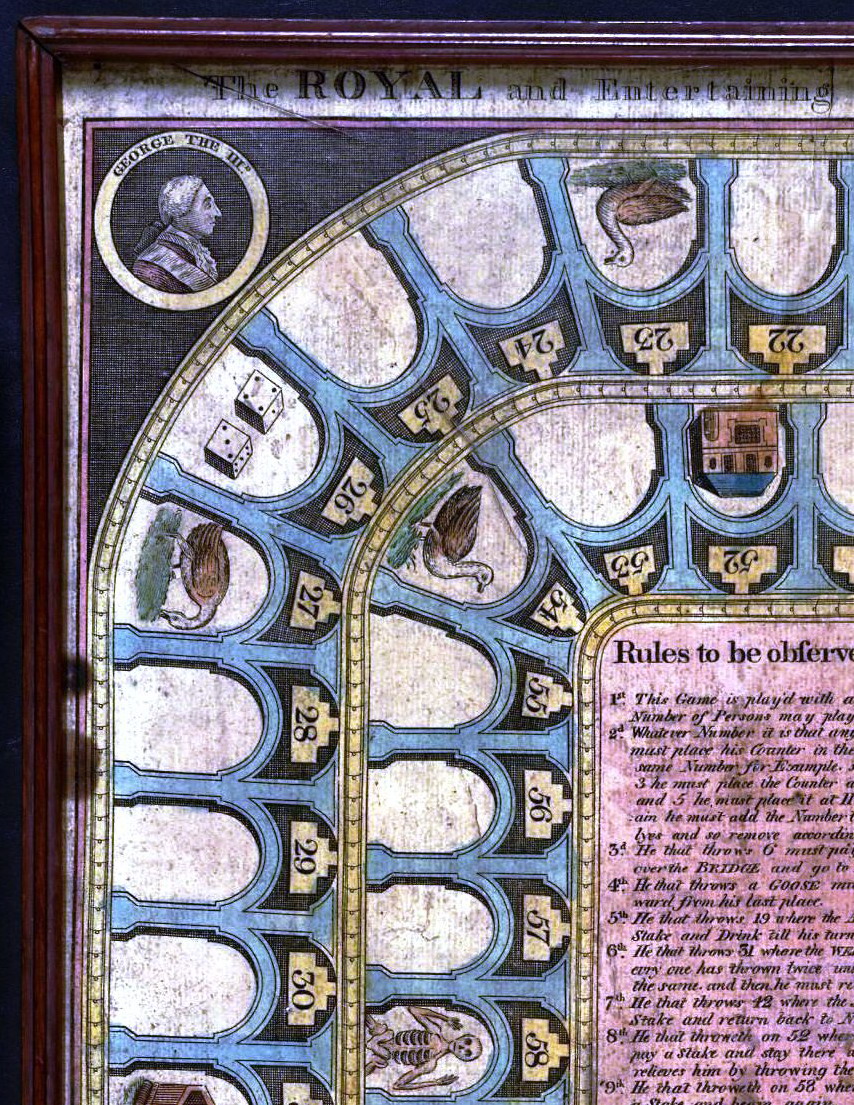 The ROYAL and Entertaining
GEORGE THE III.
24
23
22
25
26
27
53
52
54
28
55
29
56
30
57
58
Rules to be obſerve
1st This Game is play'd with a
Number of Persons may play
2d Whatever Number it is that any
must place his Counter in the
same Number for Example,
3 he must place the Counter
and 5 he must place it at
ain he must add the Number
lves and so remove accordin
3d He that throws 6 must pay
over the BRIDGE and go to
4th He that throws a GOOSE mu
ward from his last place.
5th He that throws 19 where the
Stake and Drink till his turn
6th He that throws 31 where the WE
evry one has thrown twice un
the same, and then he must re
7th He that throws 42 where the
Stake and return back to N
8th He that throweth on 52 wher
pay a Stake and stay there
relieves him by throwing the
9th He that throweth on 58 whe
a Stake and begin again